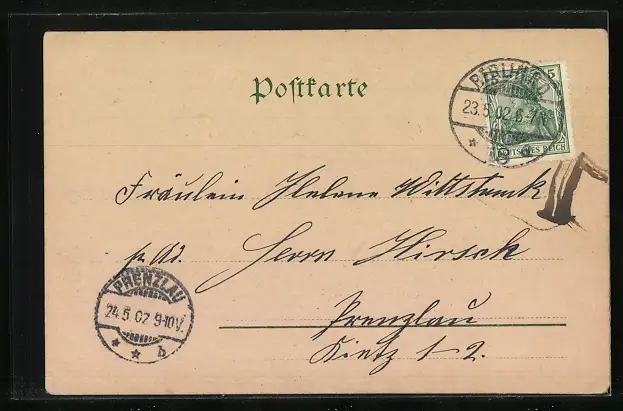 Postkarte
BERLIN
23.5.02.6-7N.
5
DEUTSCHES REICH
Fräulein Helene Wittstruck
p. Ad. Herrn Hirsch
Prenzlau
Kietz 1-2.
PRENZLAU
24.5.02 9-10V.
* * b